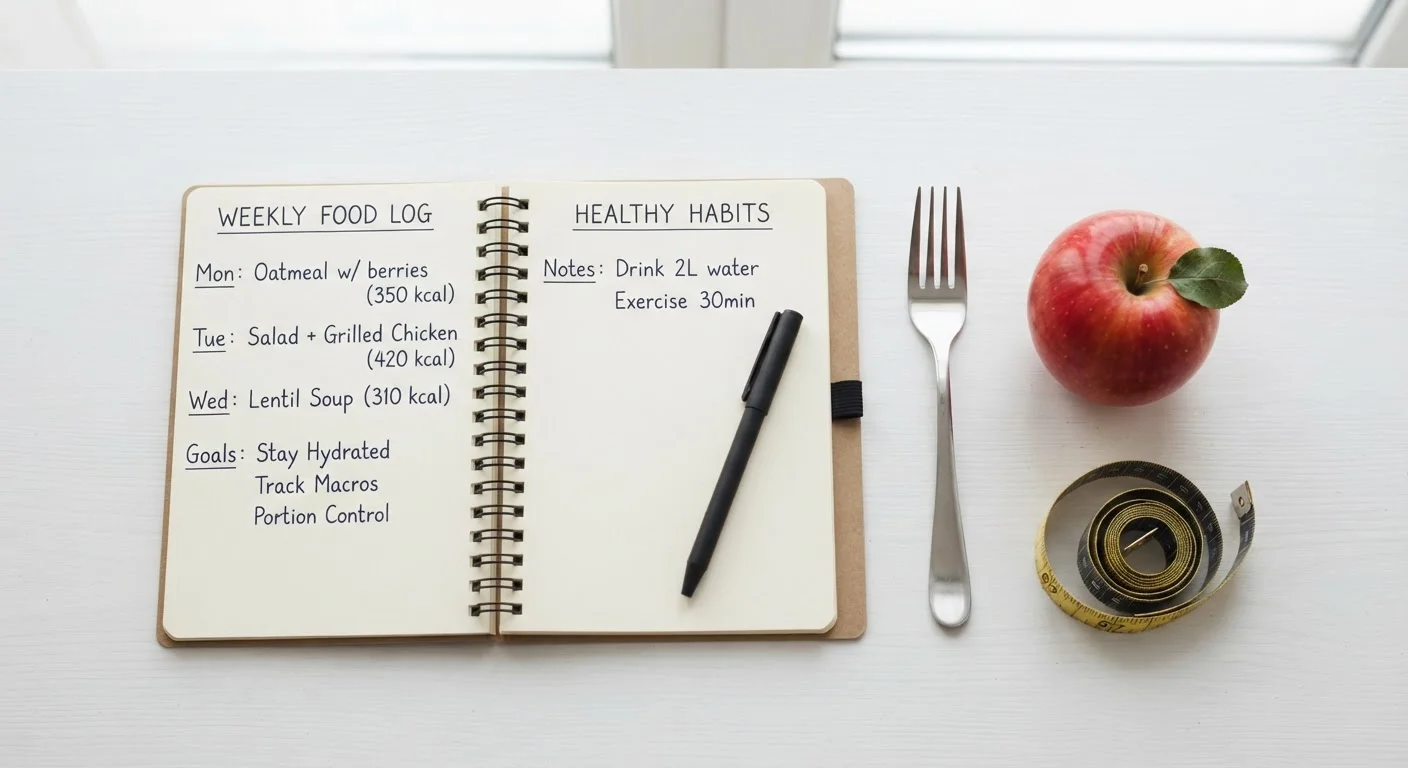 WEEKLY FOOD LOG
Mon: Oatmeal w/ berries
(350 kcal)
Tue: Salad + Grilled Chicken
(420 kcal)
Wed: Lentil Soup (310 kcal)
Goals: Stay Hydrated
Track Macros
Portion Control
HEALTHY HABITS
Notes: Drink 2L water
Exercise 30min